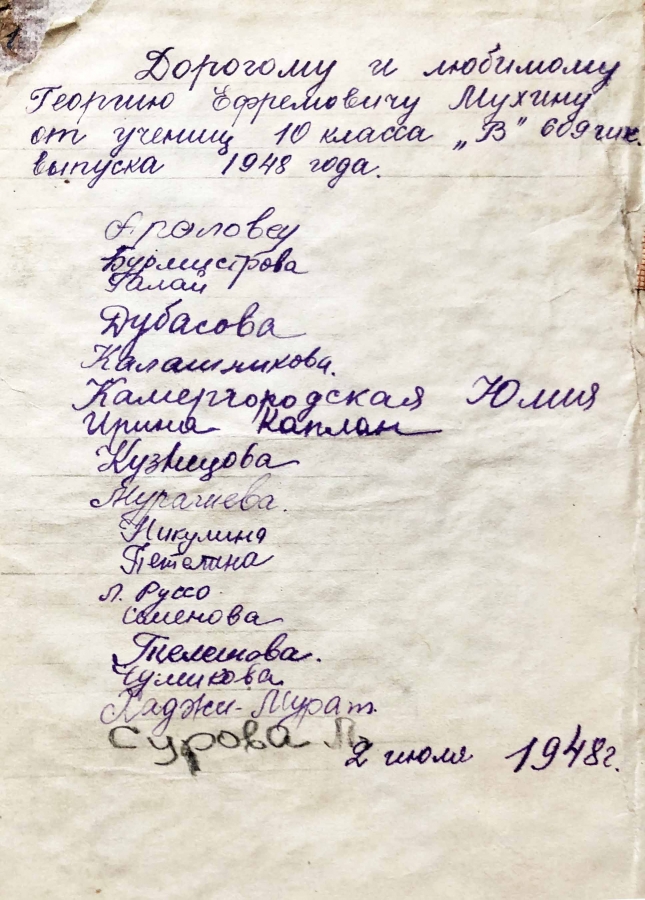 Дорогому и любимому
Георгию Ефремовичу Мухину
от учениц 10 класса „В" 609 шк.
выпуска 1948 года.
Бурмистрова
Галай
Дубасова
Калашникова.
Камергородская Юлия
Ирина Каплан
Кузнецова
Никулина
Петелина
Л. Руссо
Семенова
Чумикова
Хаджи-Мурат.
Сурова Л.
2 июля 1948г.